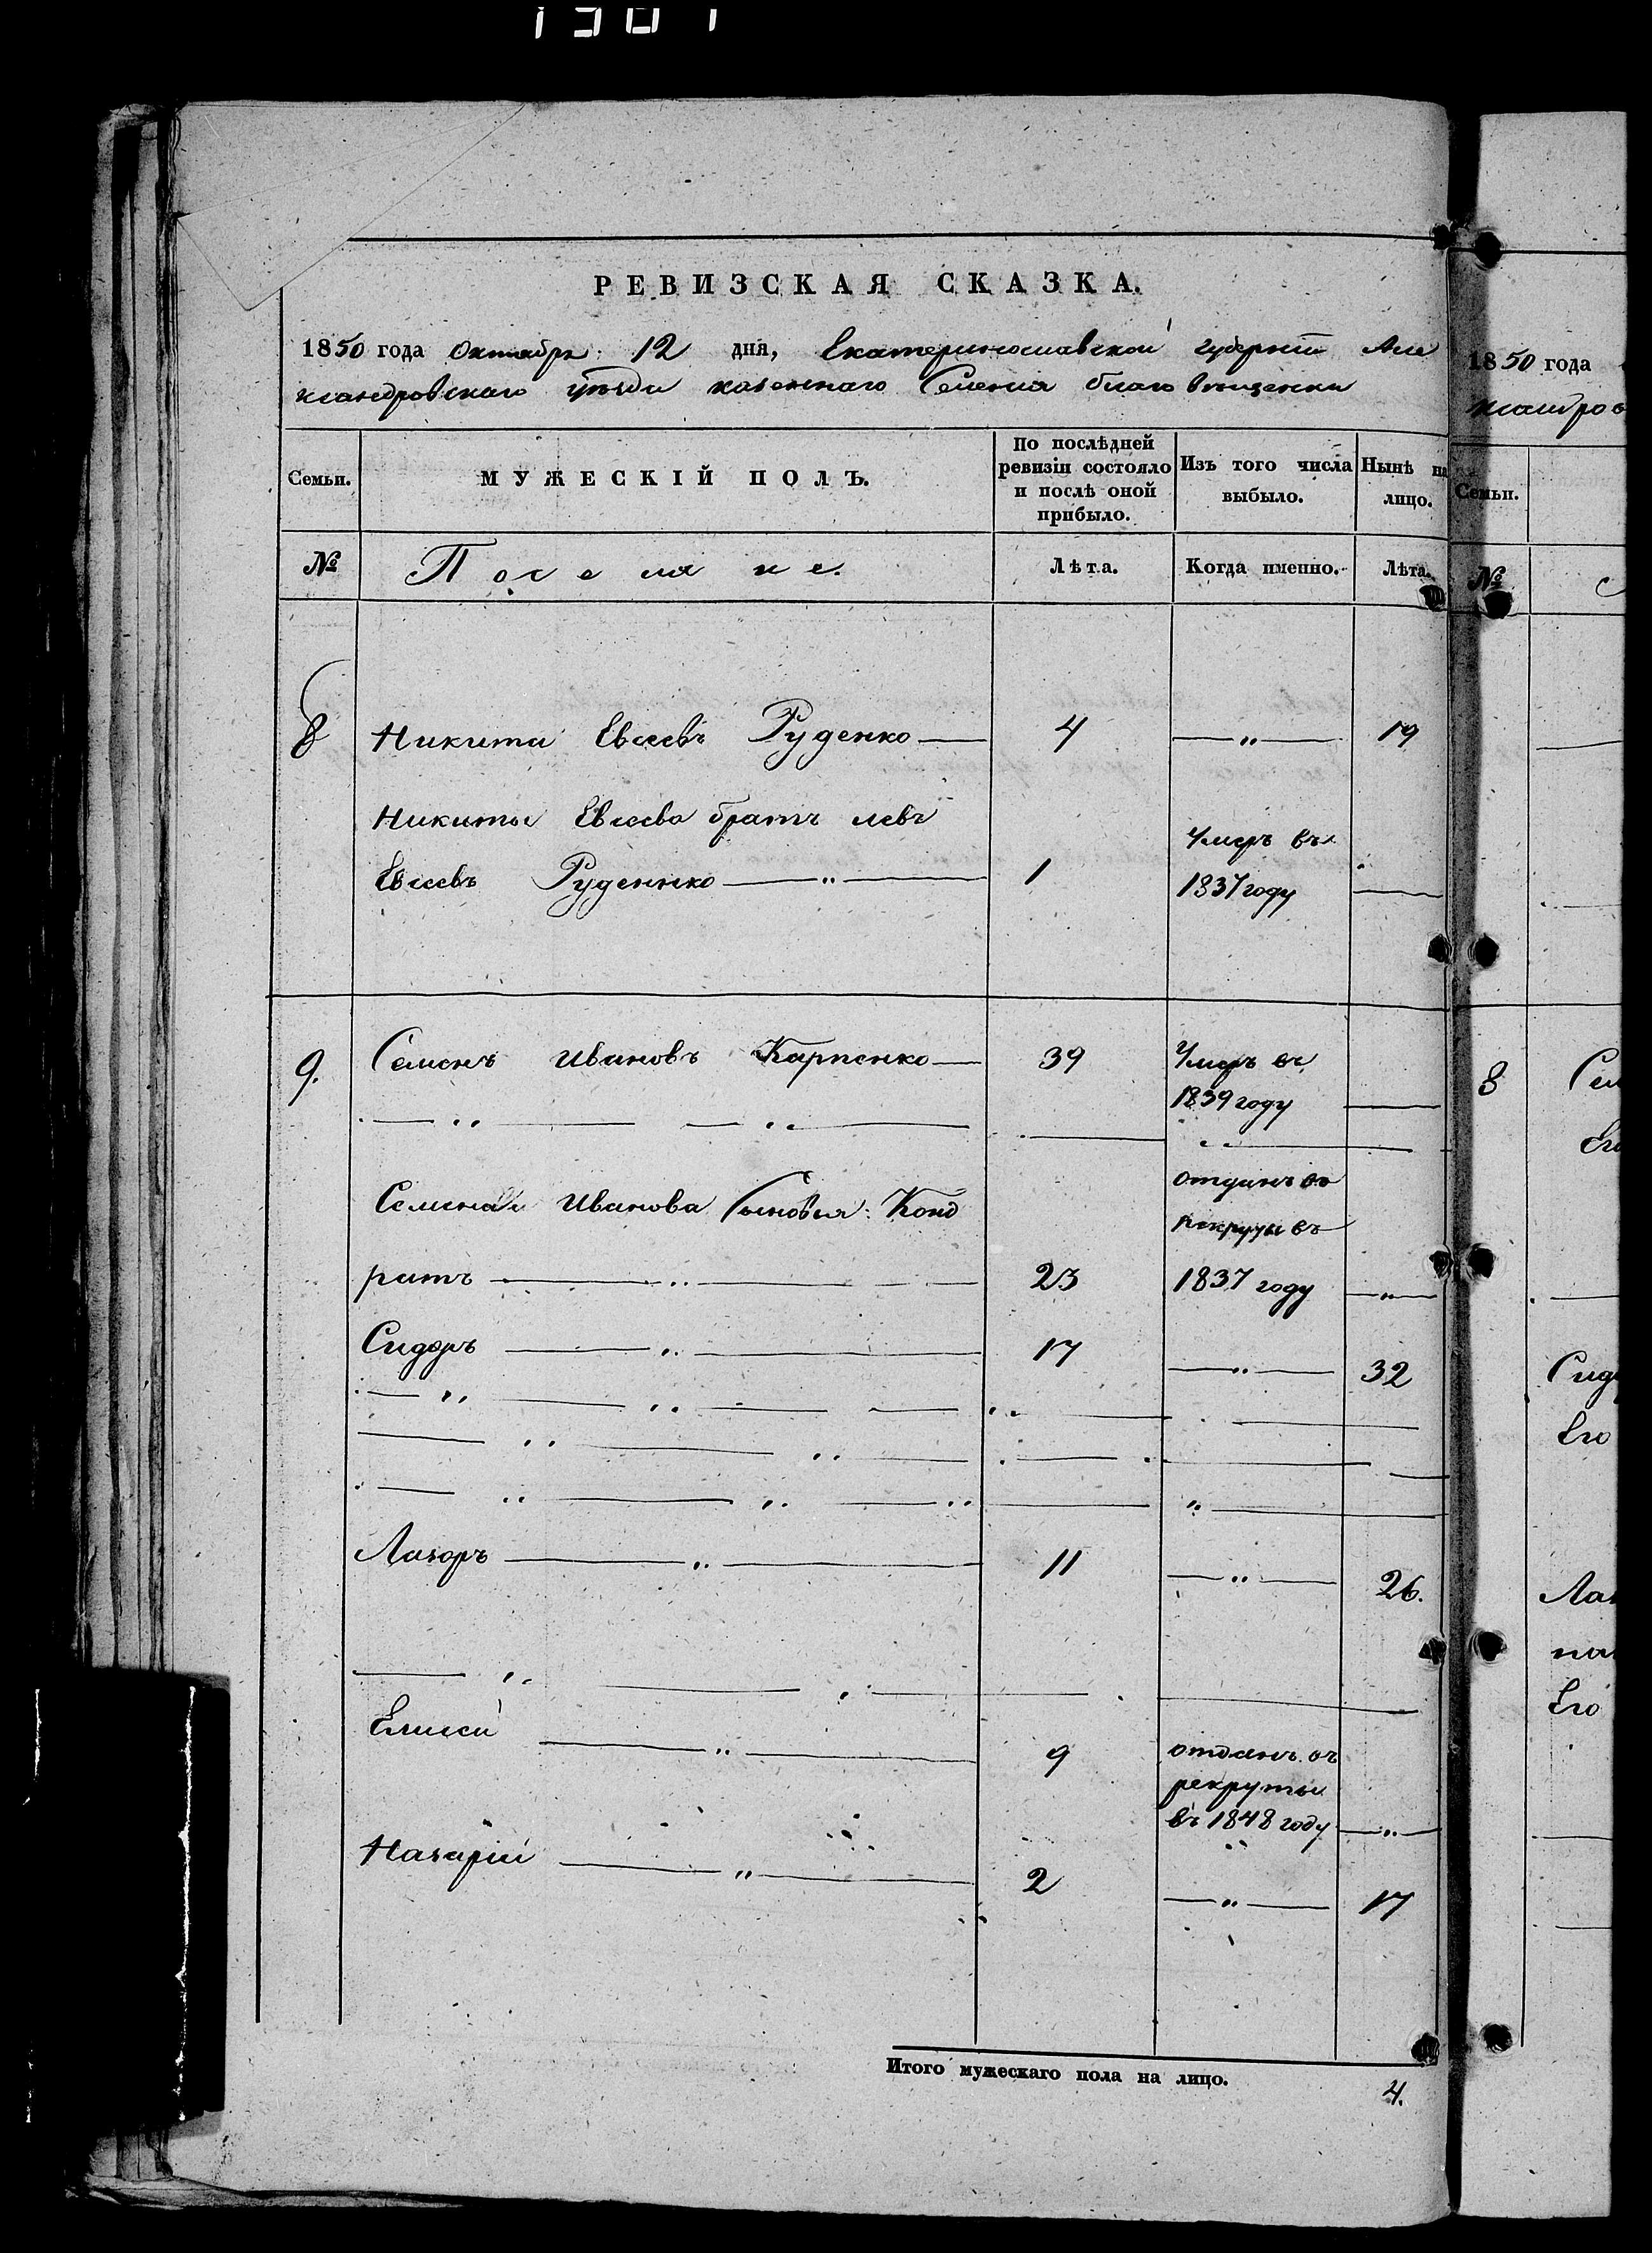 РЕВИЗСКАЯ СКАЗКА.
1850 года Октября 12 дня, Екатеринославской губернiи Але
ксандровскаго уѣзда казеннаго Селенiя благовѣщенки
Семьи. МУЖЕСКIЙ ПОЛЪ. По послѣдней ревизiи состояло и послѣ оной прибыло. Изъ того числа выбыло. Нынѣ на лицо.
№ Поселяне. Лѣта. Когда именно. Лѣта.
8 Никита Евсеевъ Руденко — 4 — „ — 19
Никиты Евсеева братъ левъ
Умеръ въ
Евсеевъ Руденнко — „ — 1 1837 году —
9. Семенъ Ивановъ Карпенко — 39 Умеръ въ
1839 году —
отданъ въ
Семена Иванова Сыновья: Конд
рекруты въ
ратъ — „ — 23 1837 году — „ —
Сидоръ — „ — 17 — „ — 32
Лазоръ — „ — 11 — „ — 26.
Елисей — „ — 9 отданъ въ
рекруты
въ 1848 году — „ —
Назарiй — „ — 2 — „ — 17
Итого мужескаго пола на лицо.
4.
1850 года
ксандров
Семьи.
№
8 Сем
Его
Сид
Его
Лаз
Его